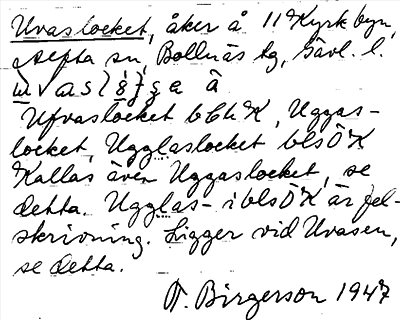 Uvaslocket, åker å 11 Kyrkbyn,
Alfta sn, Bollnäs tg, Gävl. l.
Ufvaslocket bbla K, Uggas-
locket, Ugglaslocket blsÖK
Kallas även Uggaslocket, se
detta. Ugglas- i blsÖK är fel-
skrivning. Ligger vid Uvasen,
se detta.
F. Birgerson 1947